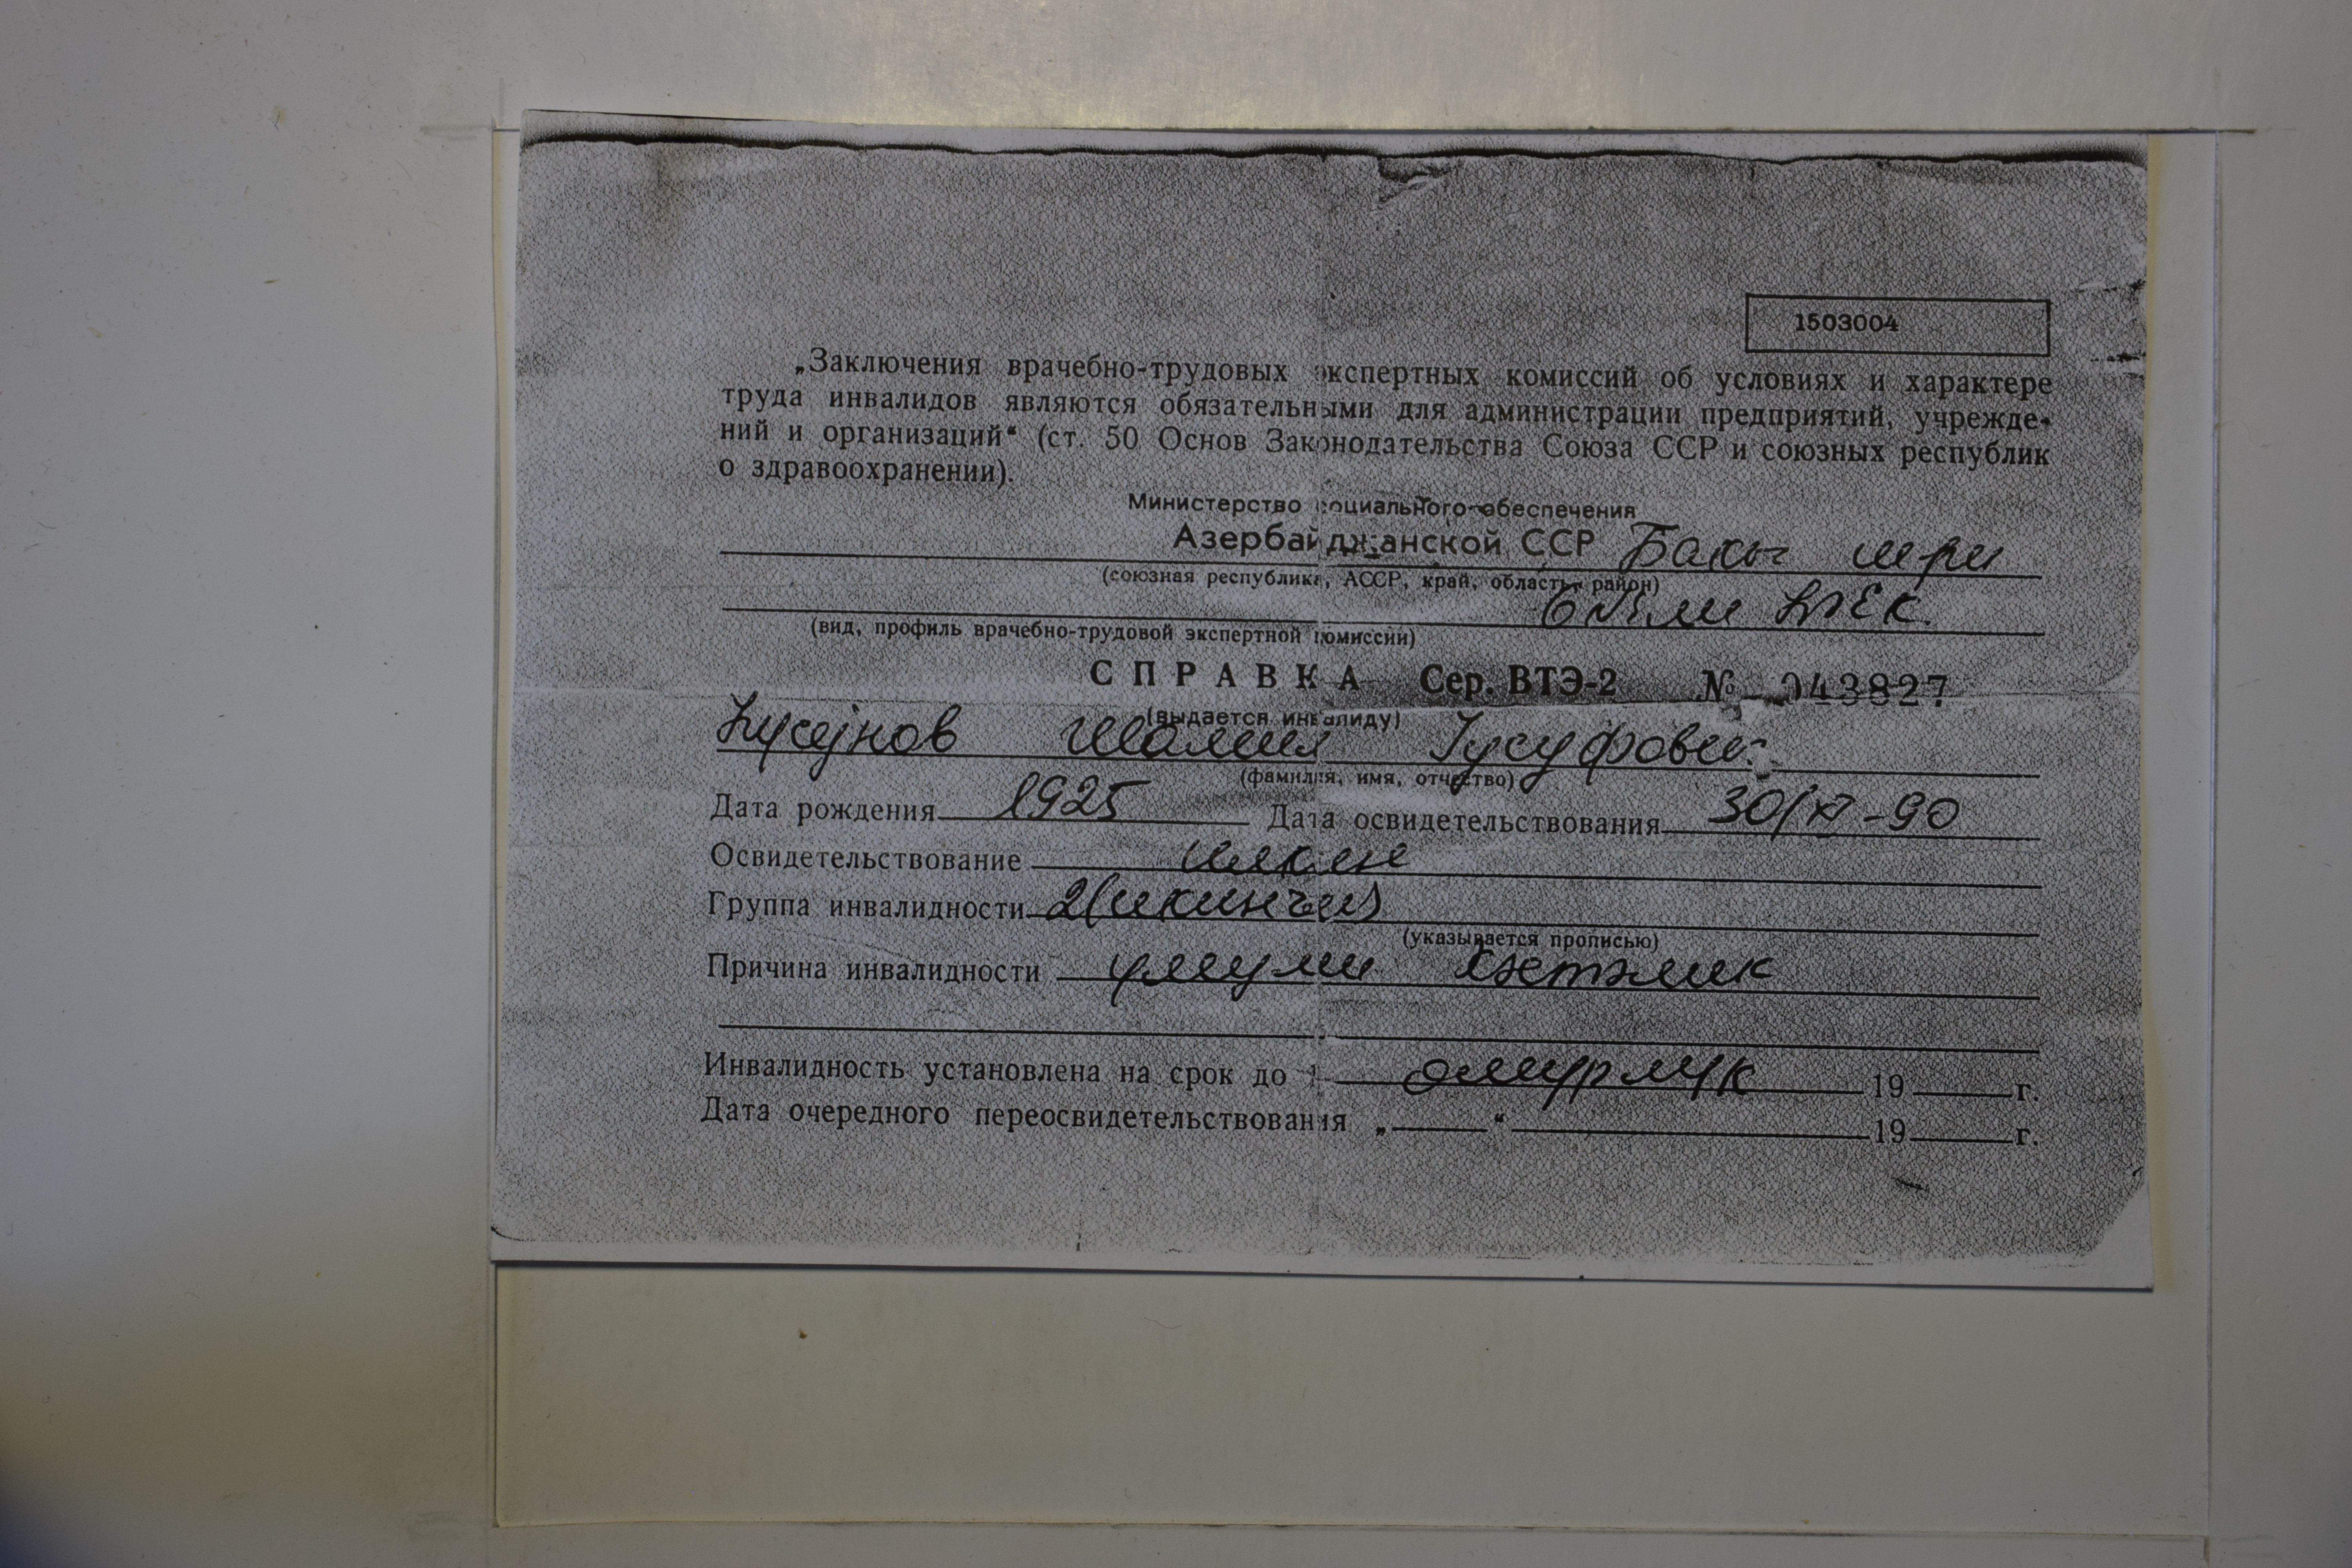 1503004
„Заключения врачебно-трудовых экспертных комиссий об условиях и характере
труда инвалидов являются обязательными для администрации предприятий, учрежде-
ний и организаций“ (ст. 50 Основ Законодательства Союза ССР и союзных республик
о здравоохранении).
Министерство социального обеспечения
Азербайджанской ССР Бакы шәһәри
(союзная республика, АССР, край, область, район)
6 №-ли ҺТЕК.
(вид, профиль врачебно-трудовой экспертной комиссии)
СПРАВКА Сер. ВТЭ-2 № 043827
(выдается инвалиду)
Һусејнов Шамил Јусуфович
(фамилия, имя, отчество)
Дата рождения 1925 Дата освидетельствования 30/XI-90
Освидетельствование илкин
Группа инвалидности 2(икинчи)
(указывается прописью)
Причина инвалидности үмуми хәстәлик
Инвалидность установлена на срок до 1 өмүрлүк 19 г.
Дата очередного переосвидетельствования „ “ 19 г.